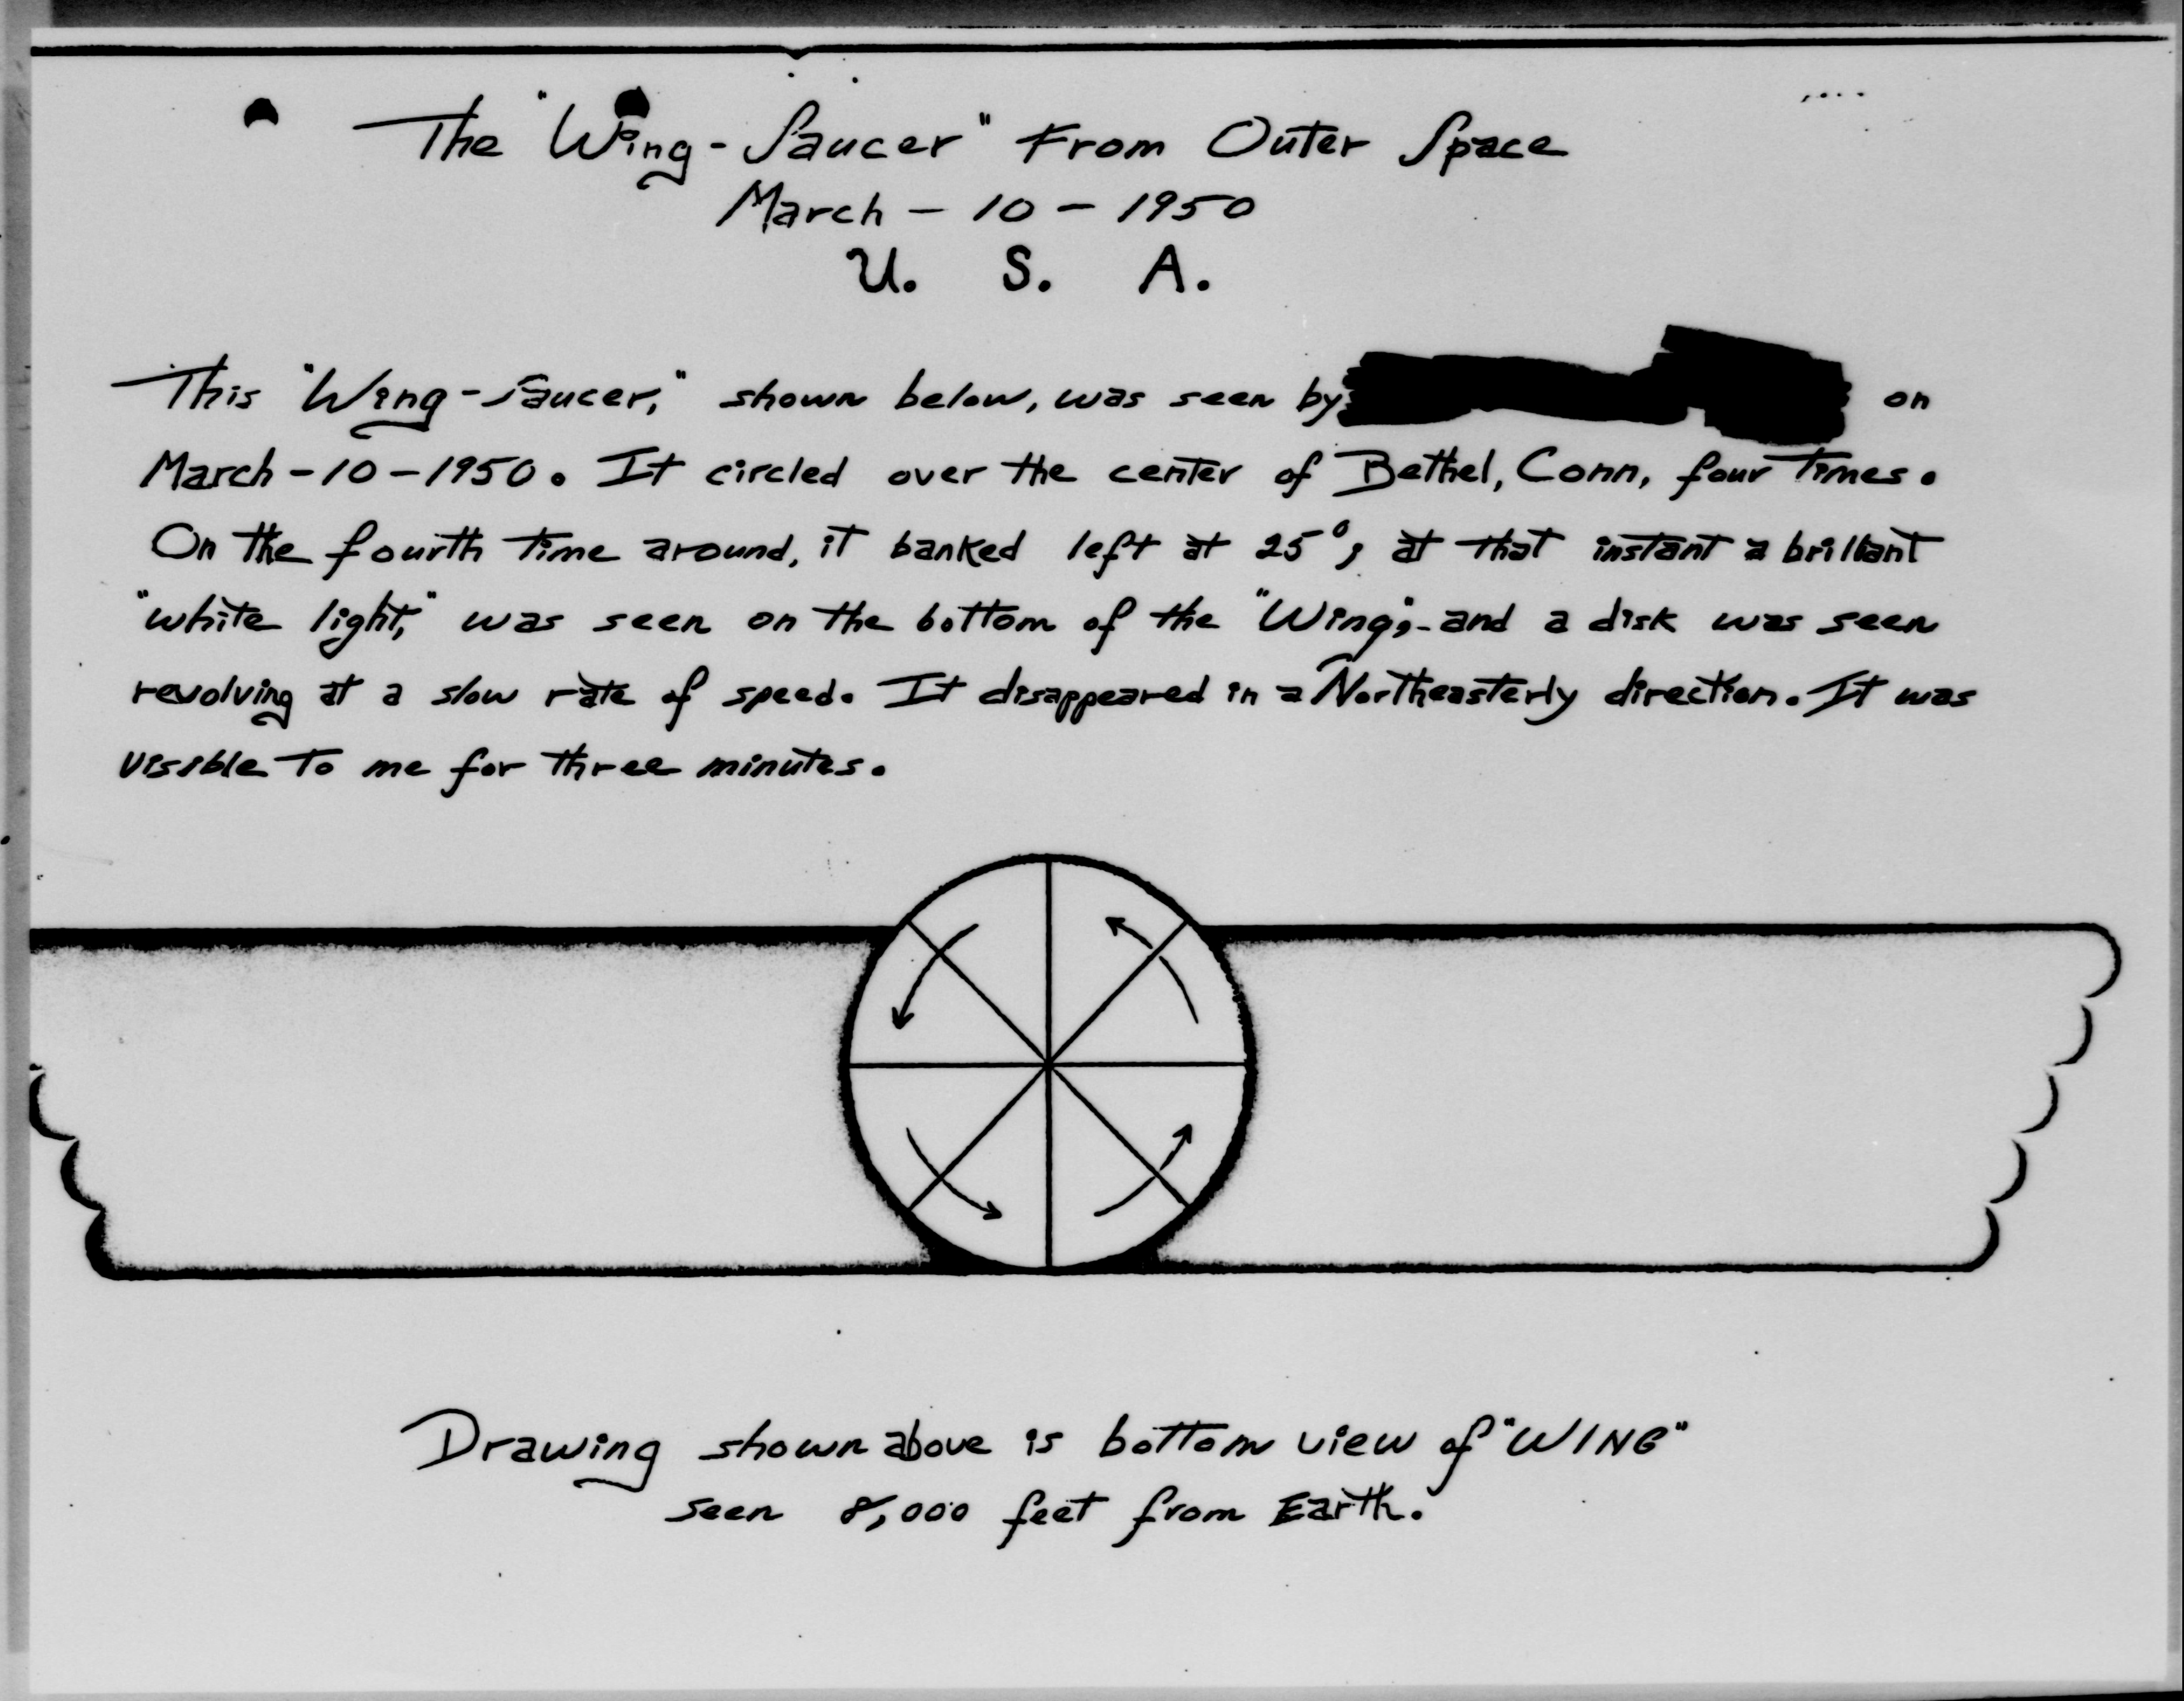 The "Wing-Saucer" From Outer Space
March - 10 - 1950
U. S. A.
This "Wing-Saucer," shown below, was seen by on
March-10-1950. It circled over the center of Bethel, Conn, four times.
On the fourth time around, it banked left at 25°; at that instant a brilliant
"white light," was seen on the bottom of the "Wing"; and a disk was seen
revolving at a slow rate of speed. It disappeared in a Northeasterly direction. It was
visible to me for three minutes.
Drawing shown above is bottom view of "WING"
seen 8,000 feet from Earth.